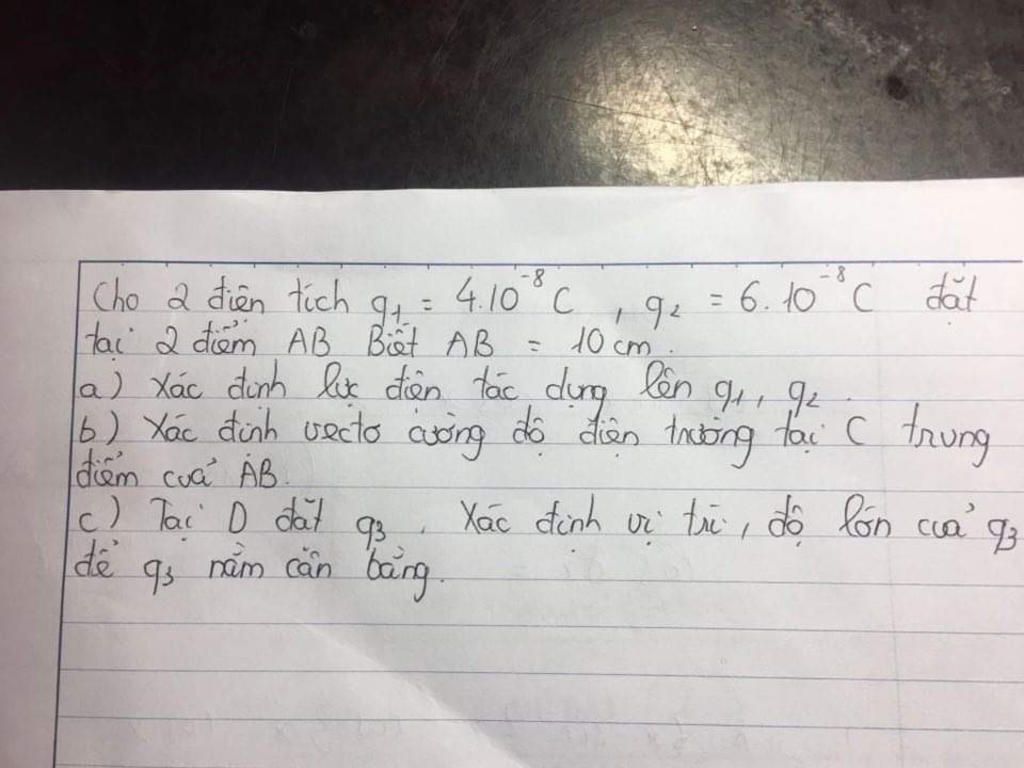 Cho 2 điện tích q₁ = 4.10⁻⁸ C , q₂ = 6.10⁻⁸ C đặt
tại 2 điểm AB Biết AB = 10 cm.
a) Xác định lực điện tác dụng lên q₁, q₂.
b) Xác định vectơ cường độ điện trường tại C trung
điểm của AB.
c) Tại D đặt q₃. Xác định vị trí, độ lớn của q₃
để q₃ nằm cân bằng.